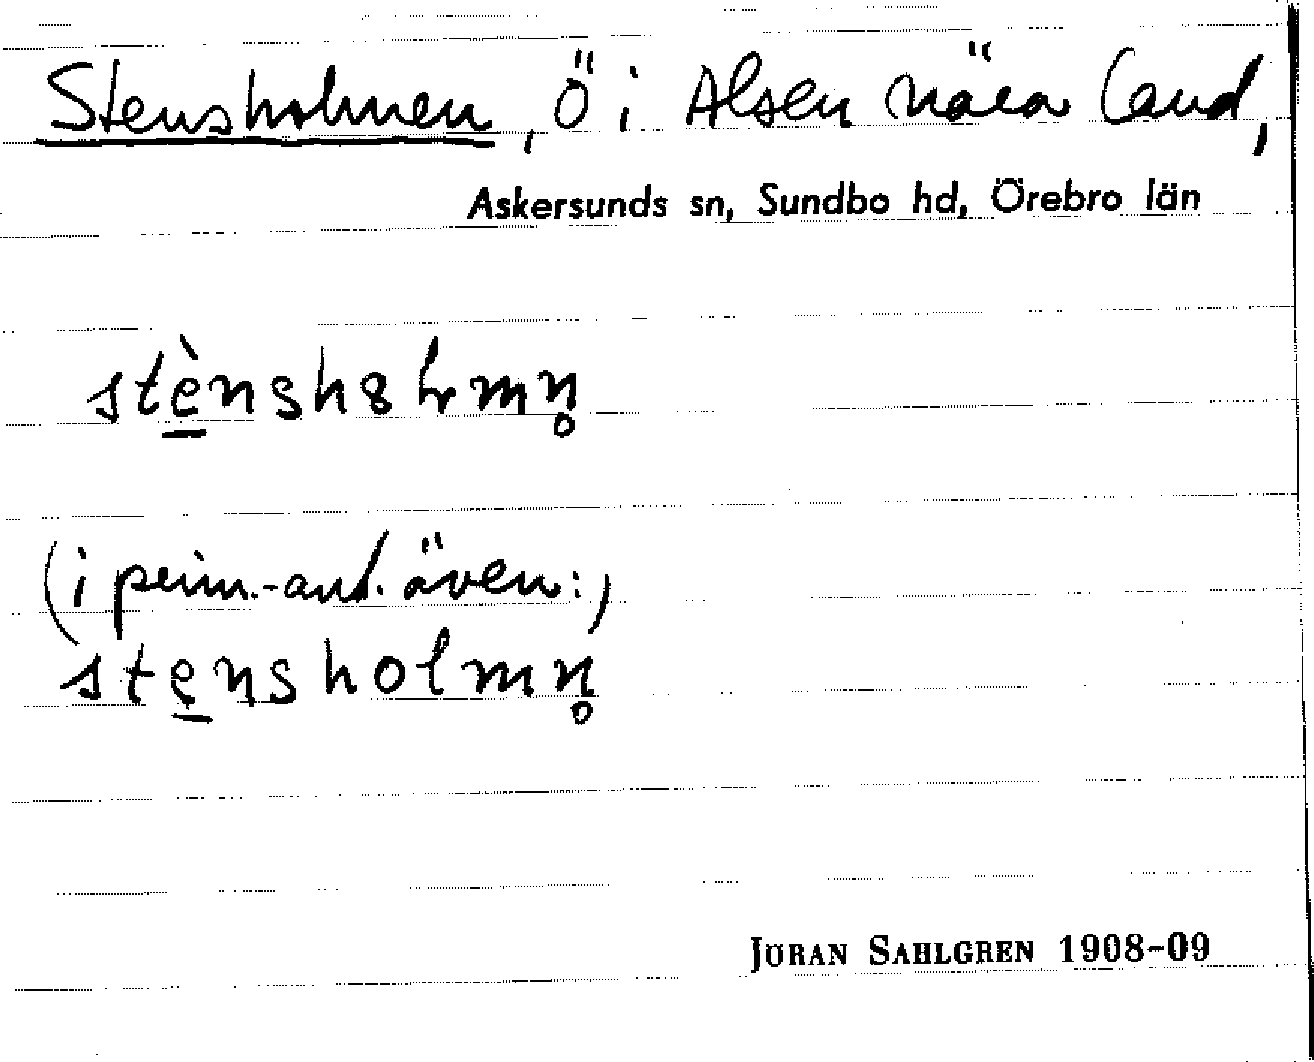 Stensholmen, ö i Alsen nära land,
Askersunds sn, Sundbo hd, Örebro län
stè̠nsh8ɽmn̥
(i prim.-ant. även:)
ste̠nsholmn̥
JÖRAN SAHLGREN 1908-09